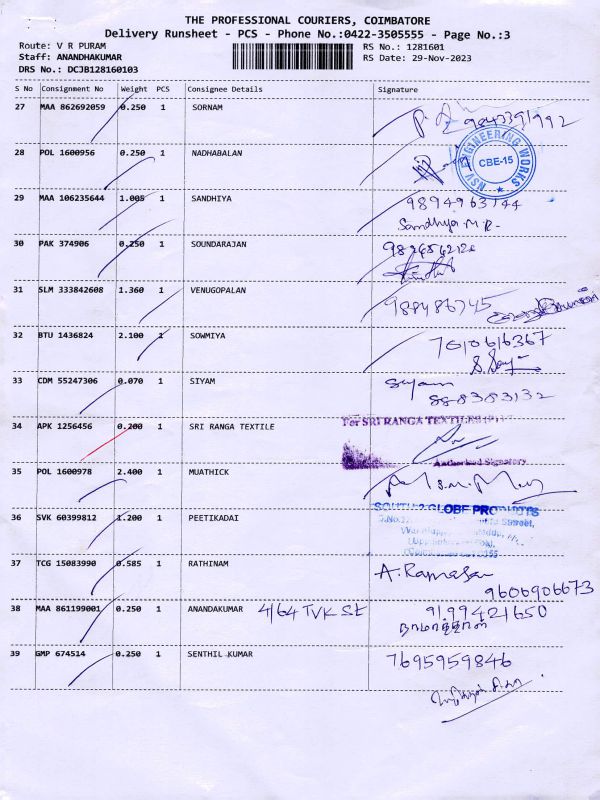 THE PROFESSIONAL COURIERS, COIMBATORE
Delivery Runsheet - PCS - Phone No.:0422-3505555 - Page No.:3
Route: V R PURAM
RS No.: 1281601
Staff: ANANDHAKUMAR
RS Date: 29-Nov-2023
DRS No.: DCJB128160103
S No Consignment No Weight PCS Consignee Details Signature
27 MAA 862692059 0.250 1 SORNAM
9843391992
28 POL 1600956 0.250 1 NADHABALAN
NSV ENGINEERING WORKS CBE-15
29 MAA 106235644 1.005 1 SANDHIYA
9894963144
Sandhiya M.R.
30 PAK 374906 0.250 1 SOUNDARAJAN
31 SLM 333842608 1.360 1 VENUGOPALAN
988486745
32 BTU 1436824 2.100 1 SOWMIYA
7010616367
33 CDM 55247306 0.070 1 SIYAM
Siyam
888383132
34 APK 1256456 0.200 1 SRI RANGA TEXTILE
For SRI RANGA TEXTILES (P)
Authorised Signatory
35 POL 1600978 2.400 1 MUATHICK
36 SVK 60399812 1.200 1 PEETIKADAI
SOUTH 2 GLOBE PRODUCTS
Street,
37 TCG 15083990 0.585 1 RATHINAM
A. Ramasan
9606906673
38 MAA 861199001 0.250 1 ANANDAKUMAR 4/64 TVK St
9199421650
39 GMP 674514 0.250 1 SENTHIL KUMAR
7695959846